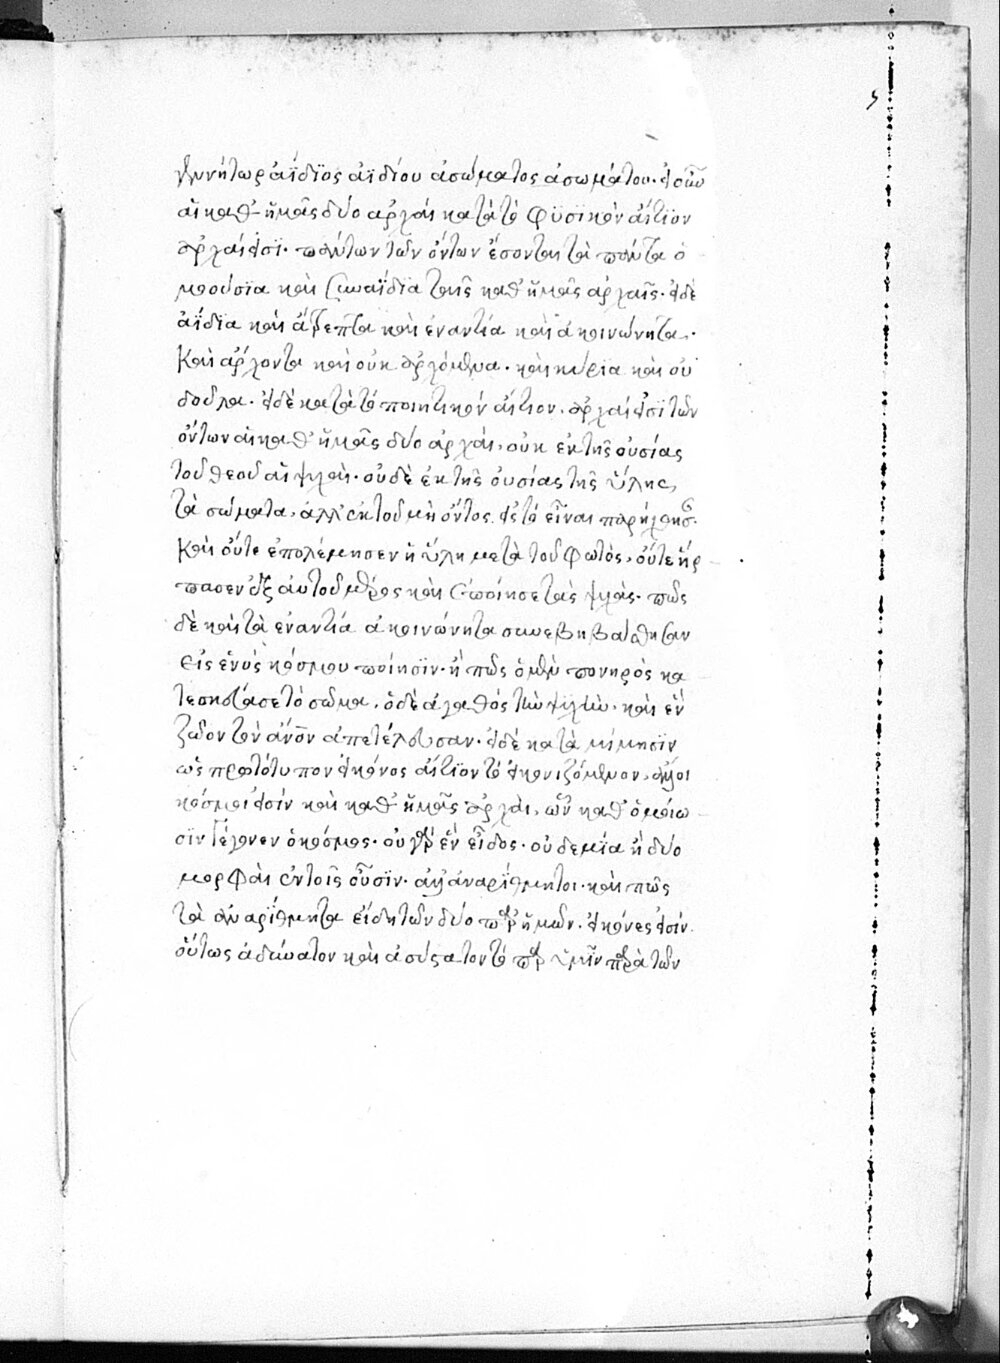 5
γεννήτωρ ἀΐδϊος ἀϊδίου ἀσώματος ἀσωμάτου. εἰ οὖν
αἱ καθ ἡμᾶς δύο ἀρχαὶ κατὰ τὸ φϋσϊκὸν αἴτϊον
ἀρχαί εἰσϊ. πάντων τῶν ὄντων ἔσονται τὰ πάντα ὁ
μοούσϊα καὶ συναΐδϊα ταῖς καθ ἡμᾶς ἀρχαῖς. εἰ δὲ
ἀΐδϊα καὶ ἄτρεπτα καὶ ἐναντία καὶ ἀκοινώνητα.
καὶ ἄρχοντα καὶ οὐκ ἀρχόμενα. καὶ κύρϊα καὶ οὐ
δοῦλα. εἰ δὲ κατὰ τὸ ποιητικὸν αἴτιον, ἀρχαί εἰσϊ τῶν
ὄντων αἱ καθ ἡμᾶς δύο ἀρχαὶ, οὐκ ἐκ τῆς οὐσίας
τοῦ θεοῦ αἱ ψυχαὶ. οὐδὲ ἐκ τῆς οὐσίας τῆς ὕλης
τὰ σώματα, ἀλλ' ἐκ τοῦ μὴ ὄντος εἰς τὸ εἶναι παρήχθησ.
καὶ οὔτε ἐπολέμησεν ἡ ὕλη μετὰ τοῦ φωτὸς, οὔτε ἥρ
πασεν ἐξ αὐτοῦ μέρος καὶ ἐποίησε τὰς ψυχὰς. πῶς
δὲ καὶ τὰ ἐναντία ἀκοινώνητα συνεβηβάσθησαν
εἰς ἑνὸς κόσμου ποίησϊν. ἢ πῶς ὁ μὲν πονηρὸς κα
τεσκεύασε τὸ σῶμα, ὁ δὲ ἀγαθὸς τὴν ψυχὴν. καὶ ἓν
ζῶον τὸν ἄνον ἀπετέλεσαν. εἰ δὲ κατὰ μίμησϊν
ὡς πρωτότυπον εἰκόνος αἴτϊον τὸ εἰκονιζόμενον,
κόσμοι εἰσὶν καὶ καθ ἡμᾶς ἀρχαὶ, ὧν καθ ὁμοίω
σϊν γέγονεν ὁ κόσμος. οὐ γὰρ ἓν εἶδος. οὐδὲ μία ἢ δύο
μορφαὶ ἐν τοῖς οὖσϊν. ἀλλ' ἀναρίθμητοι. καὶ πῶς
τὰ ἀναρίθμητα εἴδη τῶν δύο παρ ἡμῶν. εἰκόνες εἰσίν.
οὕτως ἀδύνατον καὶ ἀσύστατον τὸ παρ ὑμῖν παρὰ τῶν